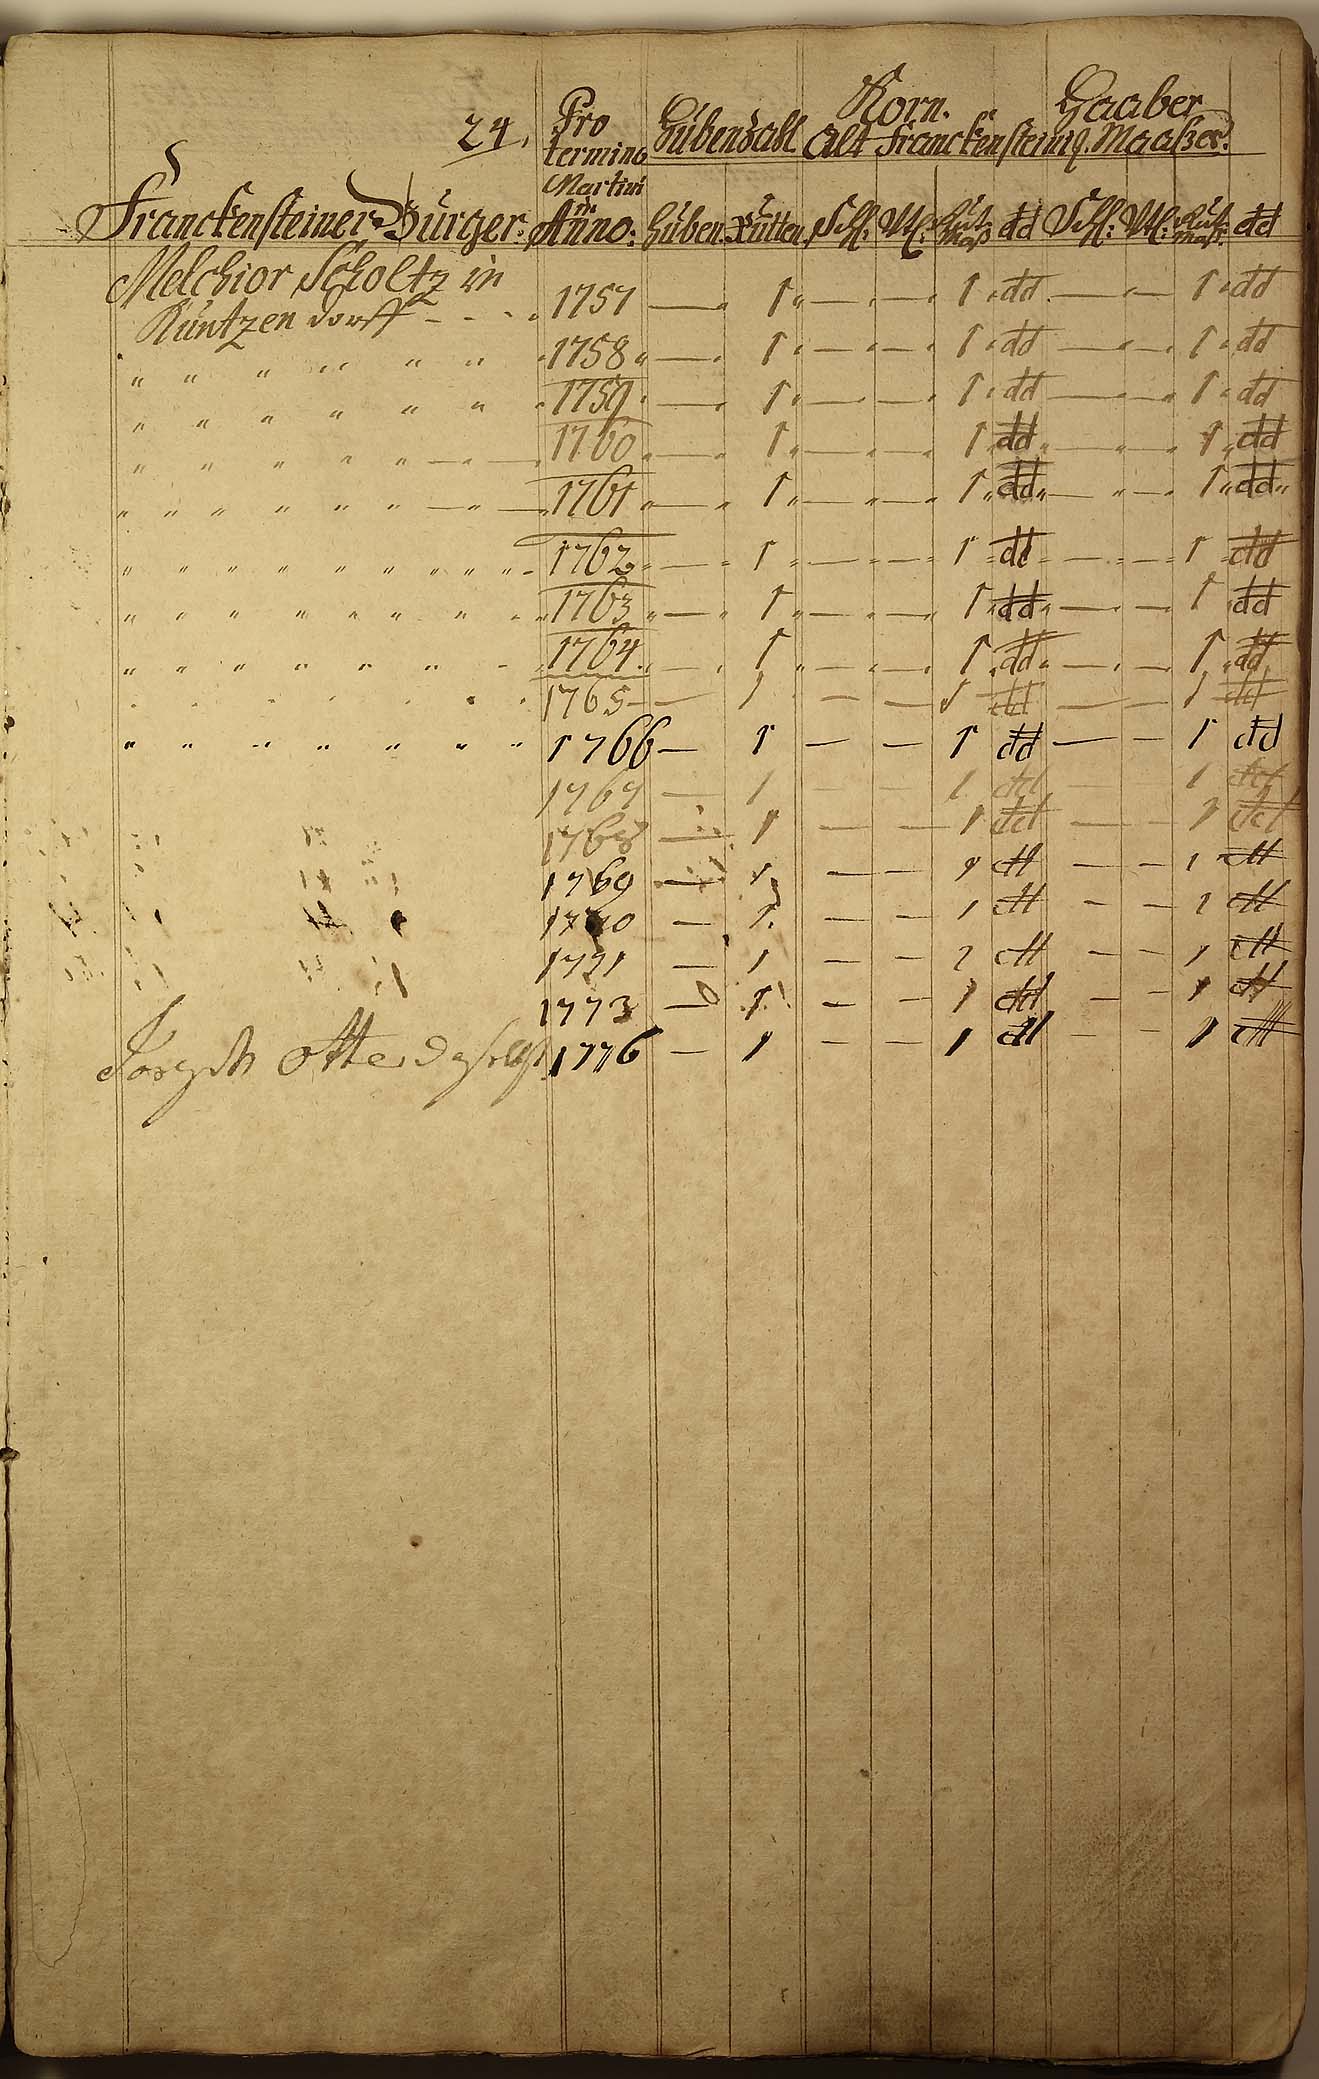 24.
Pro termino Martini in Anno:
Hubenzahl
Korn.
Haaber
Alt Franckensteinig. Maaßes.
Franckensteiner Burger:
Huben. Rutten. Schl: Vtl: Maß dd Schl: Vtl: Maß. dd
Melchior Scholtz in
Kuntzendorff - - - . 1757 — 1 — — 1 dd — — 1 dd
" " " " " " 1758 — 1 — — 1 dd — — 1 dd
" " " " " " 1759 — 1 — — 1 dd — — 1 dd
" " " " " — — 1760 — 1 — — 1 dd — — 1 dd
" " " " " " — " — 1761 — 1 — — 1 dd — — 1 dd
" " " " " " " " " 1762 — 1 — — 1 dd — — 1 dd
" " " " " " " " " 1763 — 1 — — 1 dd — — 1 dd
" " " " " " - 1764 — 1 — — 1 dd — — 1 dd
" " " " " " 1765 — 1 — — 1 dd — — 1 dd
" " " " " " " 1766 — 1 — — 1 dd — — 1 dd
1767 — 1 — — 1 dd — — 1 dd
1768 — 1 — — 1 dd — — 1 dd
1769 — 1 — — 1 dd — — 1 dd
1770 — 1 — — 1 dd — — 1 dd
1771 — 1 — — 1 dd — — 1 dd
1773 — 1 — — 1 dd — — 1 dd
Joseph Otte daselbst 1776 — 1 — — 1 dd — — 1 dd